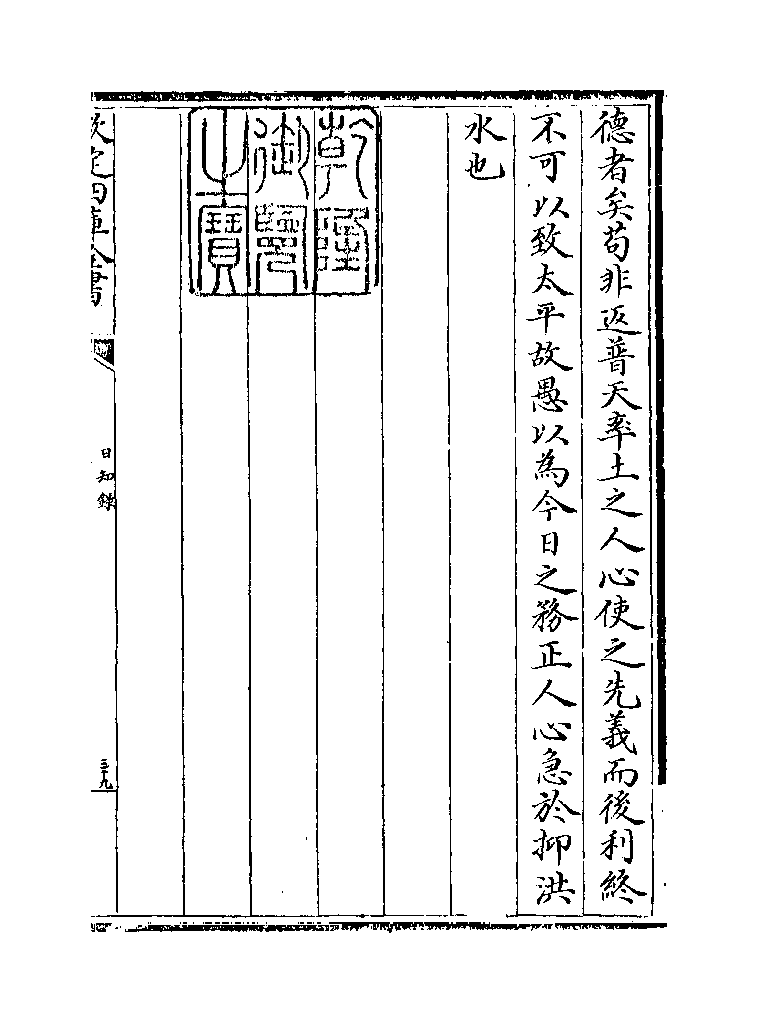 德者矣苟非返普天率土之人心使之先義而後利終
不可以致太平故愚以為今日之務正人心急於抑洪
水也
乾隆
御覽
之寶
欽定四庫全書
日知錄
三十九